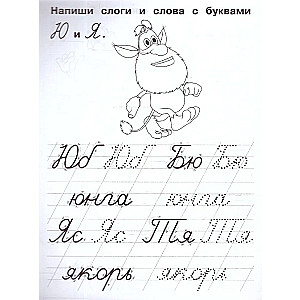 Напиши слоги и слова с буквами
Ю и Я.
Юб Юб Бю Бю
юнга юнга
Яс Яс Тя Тя
якорь якорь